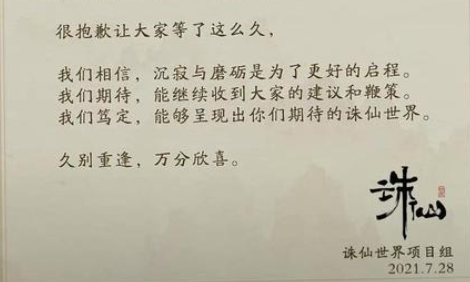 很抱歉让大家等了这么久，
我们相信，沉寂与磨砺是为了更好的启程。
我们期待，能继续收到大家的建议和鞭策。
我们笃定，能够呈现出你们期待的诛仙世界。
久别重逢，万分欣喜。
诛仙
诛仙世界项目组
2021.7.28